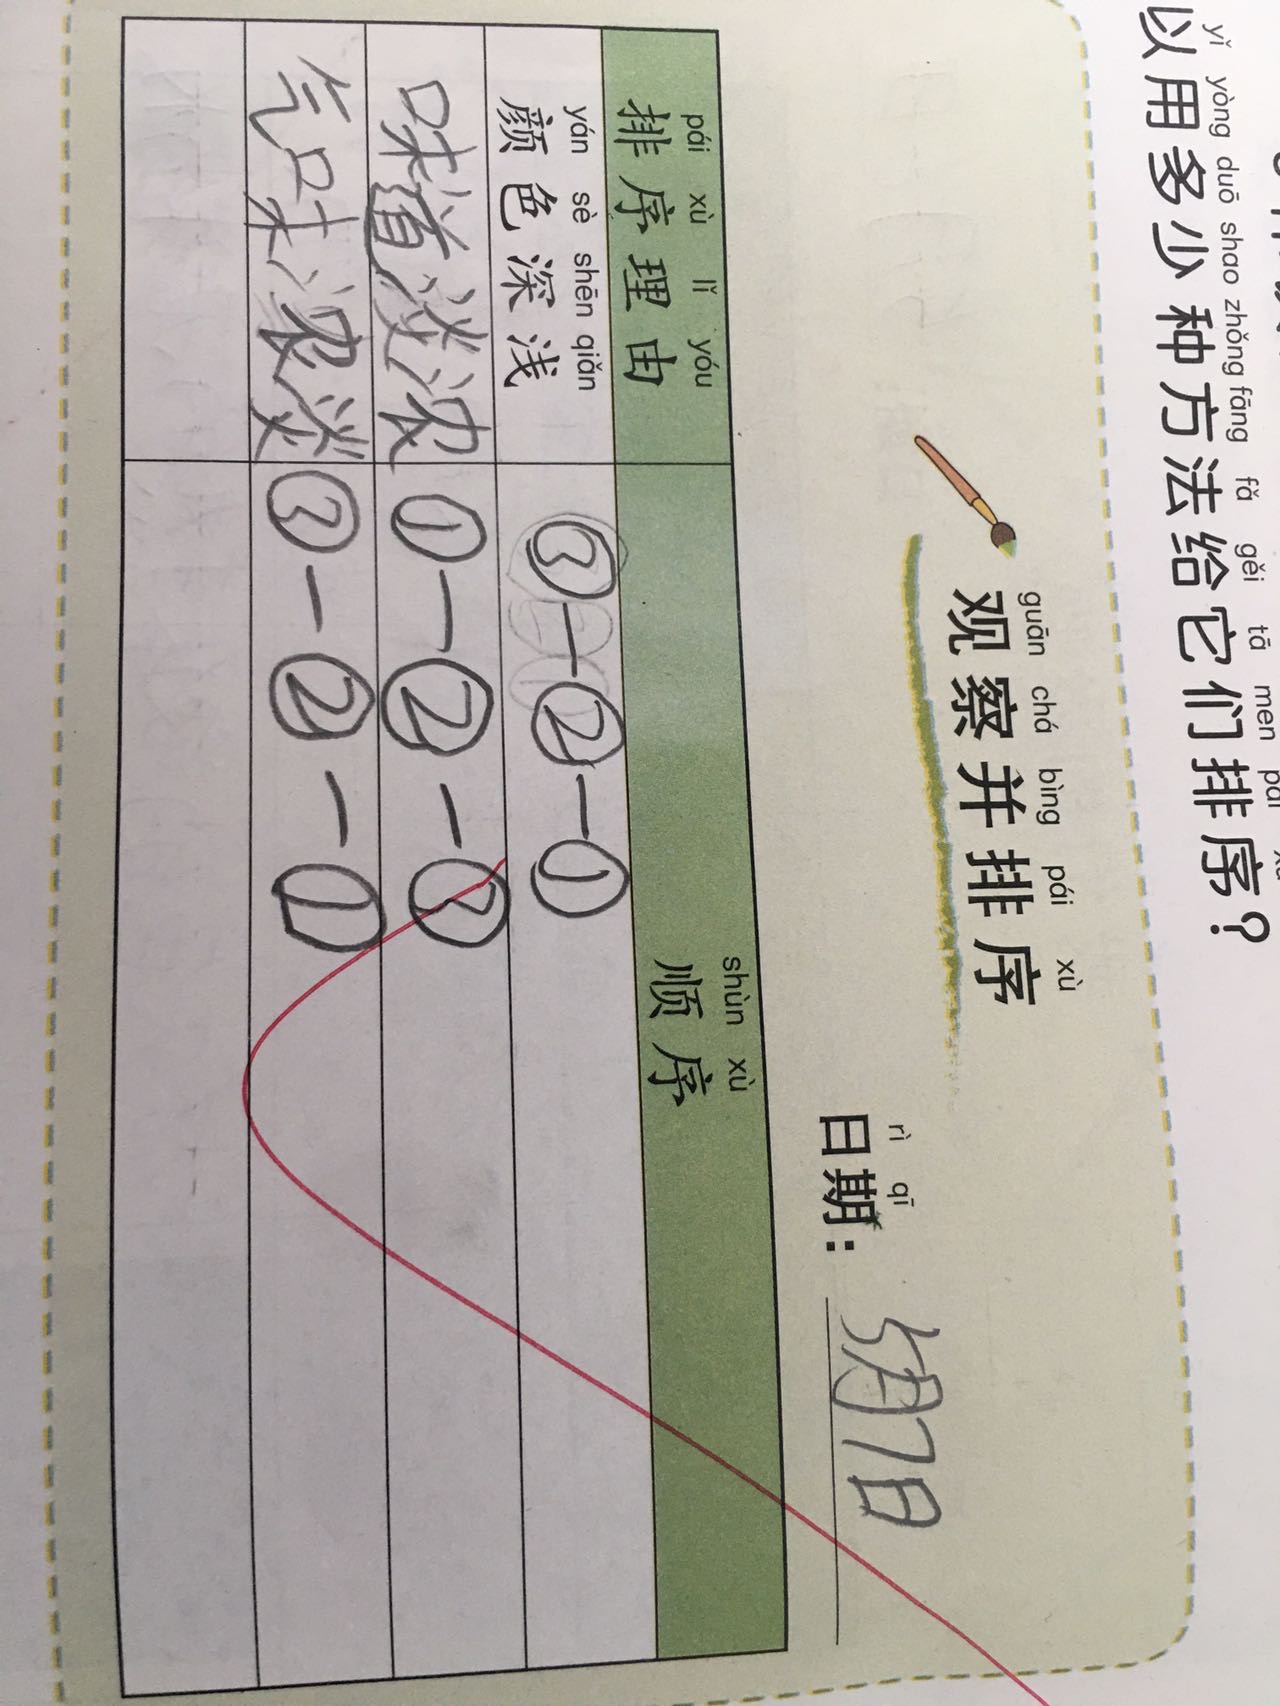 yǐ yòng duō shao zhǒng fāng fǎ gěi tā men pái
以用多少种方法给它们排序？
guān chá bìng pái xù
观察并排序
rì qī
日期：5月7日
pái xù lǐ yóu shùn xù
排序理由 顺序
yán sè shēn qiǎn
颜色深浅 ③—②—①
味道淡浓 ①—②—③
气味浓淡 ③—②—①